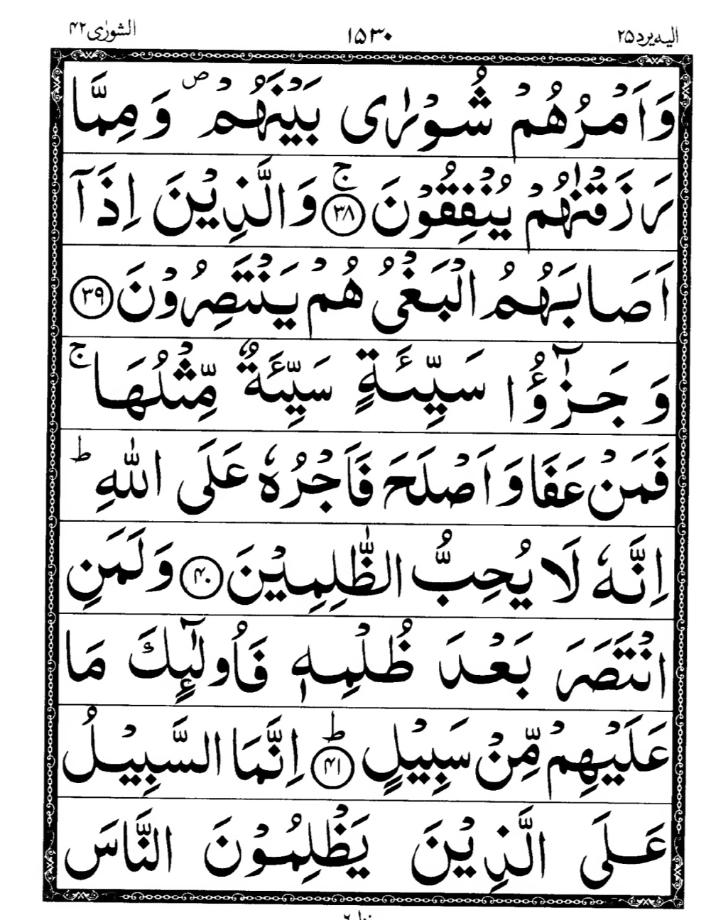 الیہ یرد ۲۵ ۱۵۳۰ الشورٰی ۴۲
وَاَمْرُهُمْ شُوْرٰى بَيْنَهُمْ ۪ وَ مِمَّا
رَزَقْنٰهُمْ يُنْفِقُوْنَ ۚ۝۳۸ وَالَّذِيْنَ اِذَاۤ
اَصَابَهُمُ الْبَغْيُ هُمْ يَنْتَصِرُوْنَ ۝۳۹
وَ جَزٰٓؤُا سَيِّئَةٍ سَيِّئَةٌ مِّثْلُهَا ۚ
فَمَنْ عَفَا وَاَصْلَحَ فَاَجْرُهٗ عَلَى اللّٰهِ ؕ
اِنَّهٗ لَا يُحِبُّ الظّٰلِمِيْنَ ۝۴۰ وَلَمَنِ
انْتَصَرَ بَعْدَ ظُلْمِهٖ فَاُولٰٓئِكَ مَا
عَلَيْهِمْ مِّنْ سَبِيْلٍ ؕ۝۴۱ اِنَّمَا السَّبِيْلُ
عَلَى الَّذِيْنَ يَظْلِمُوْنَ النَّاسَ